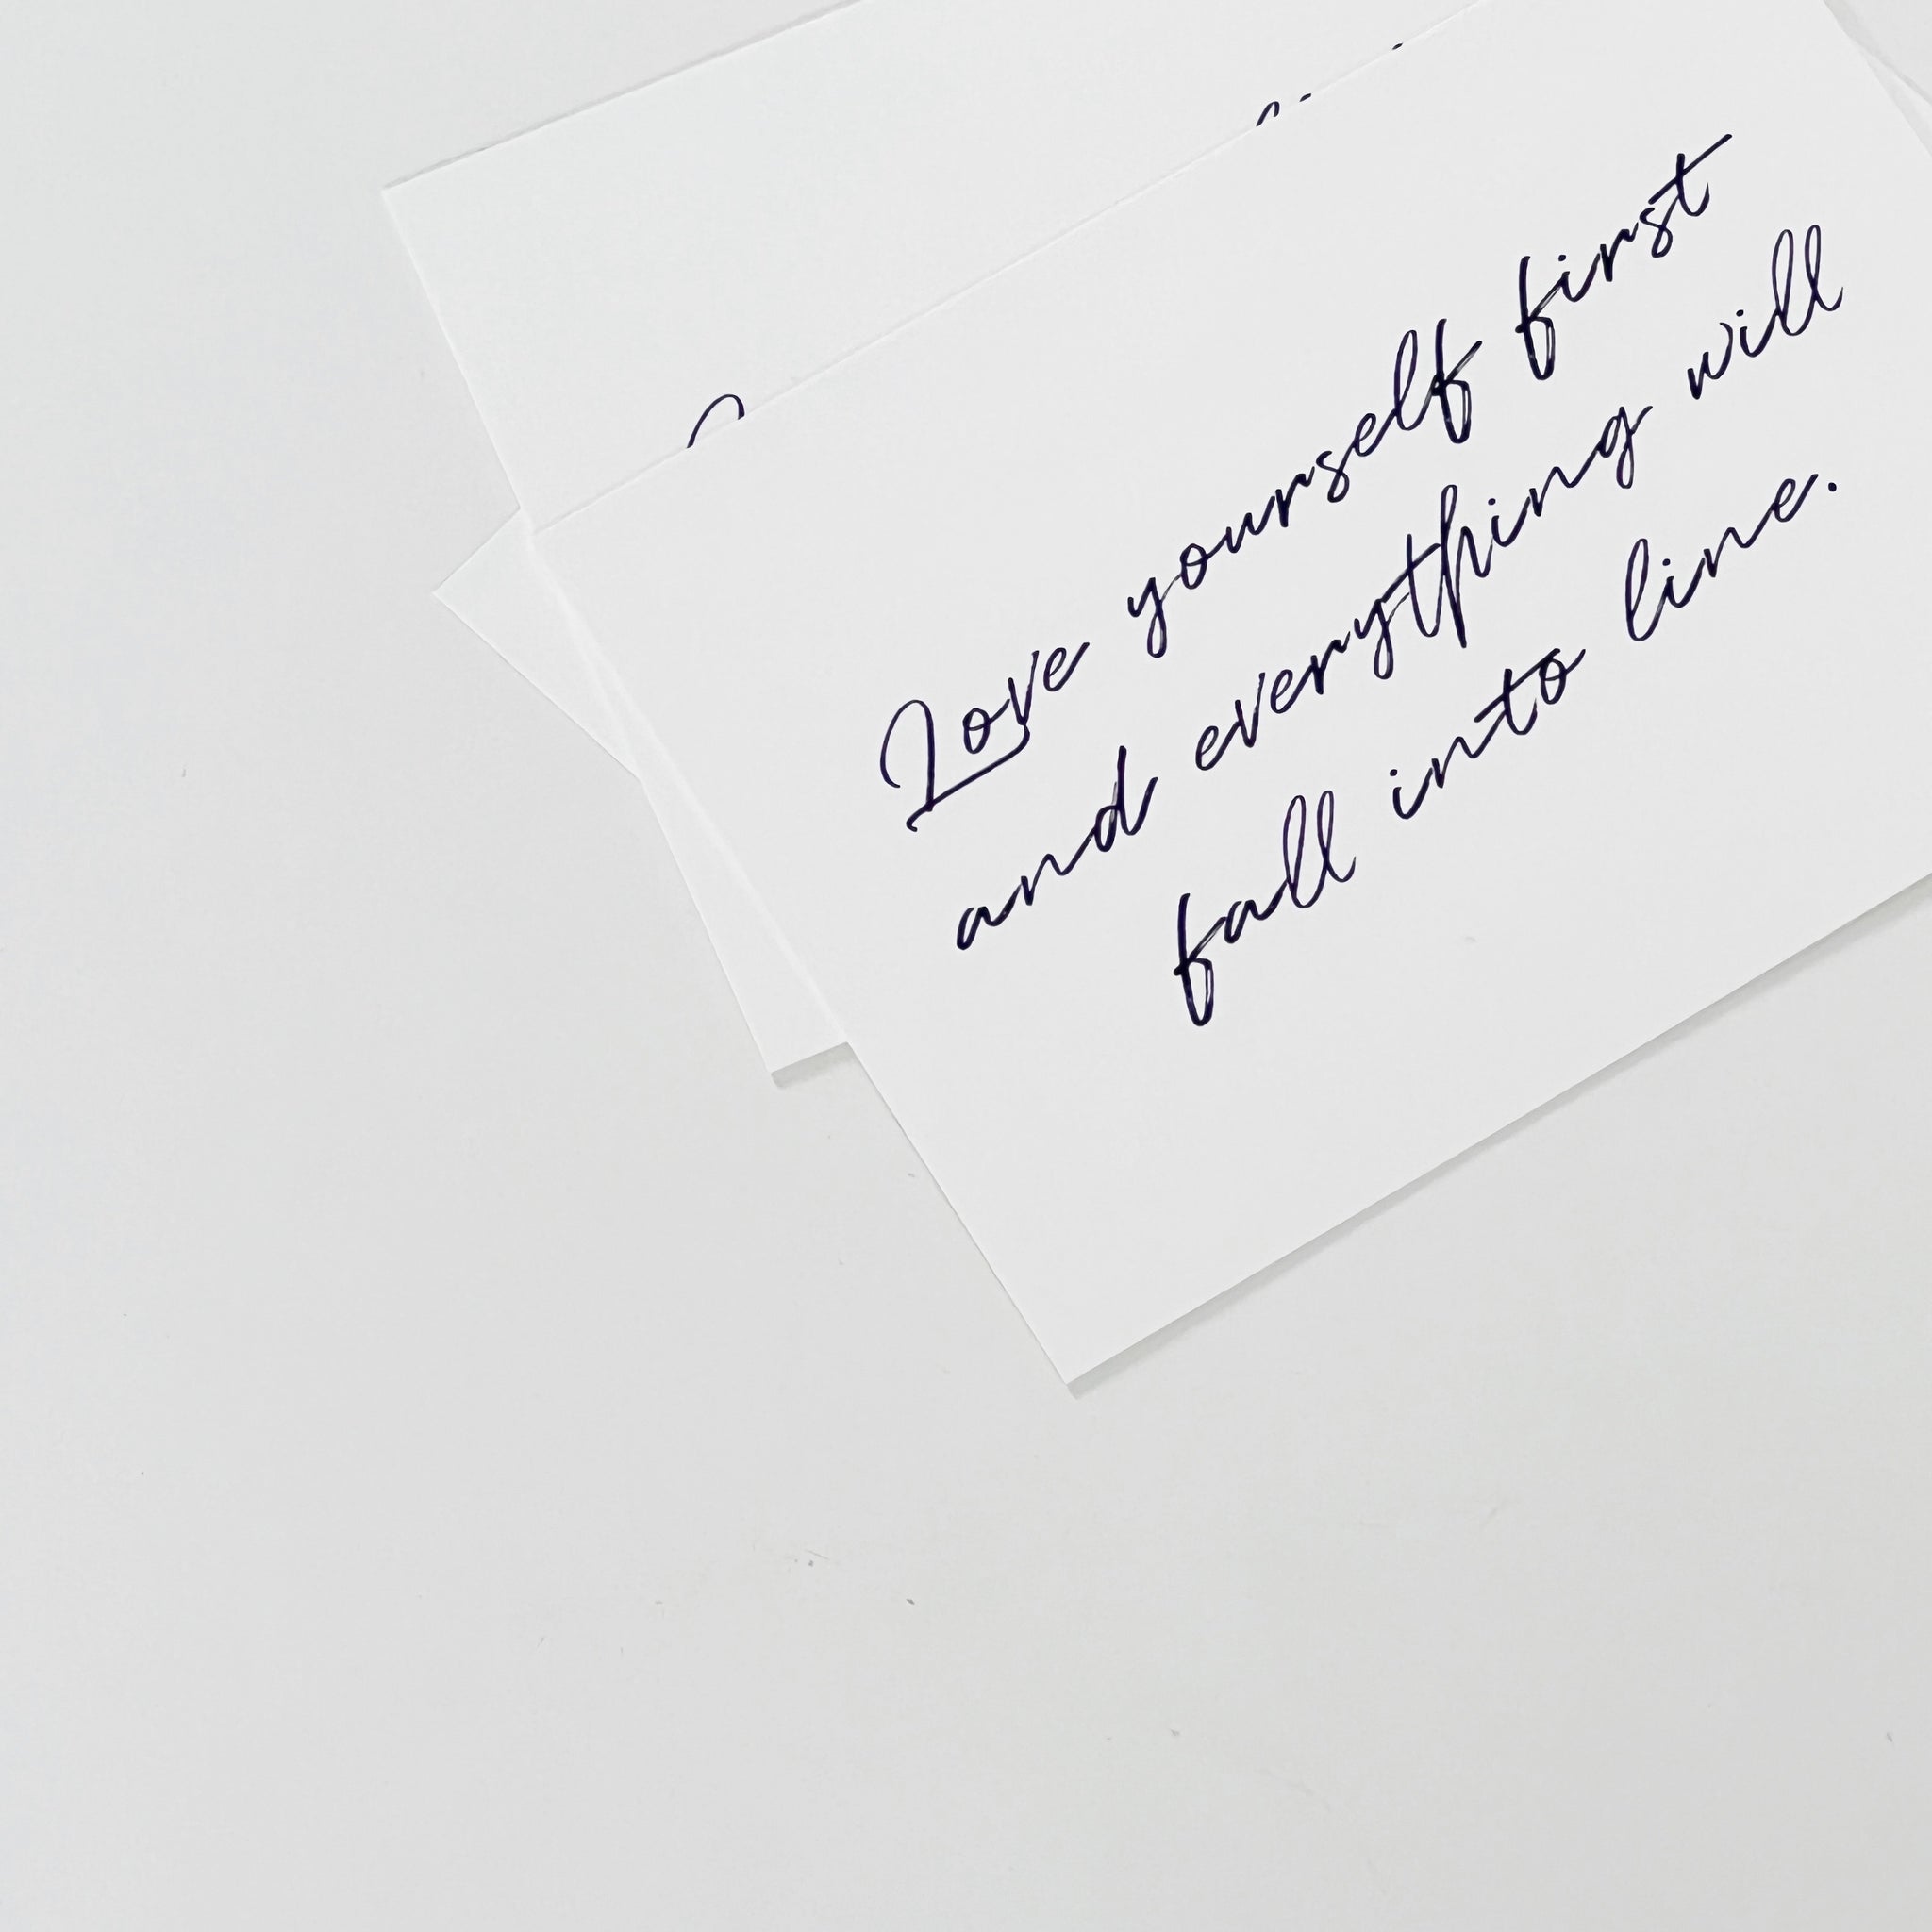 Love yourself first
and everything will
fall into line.